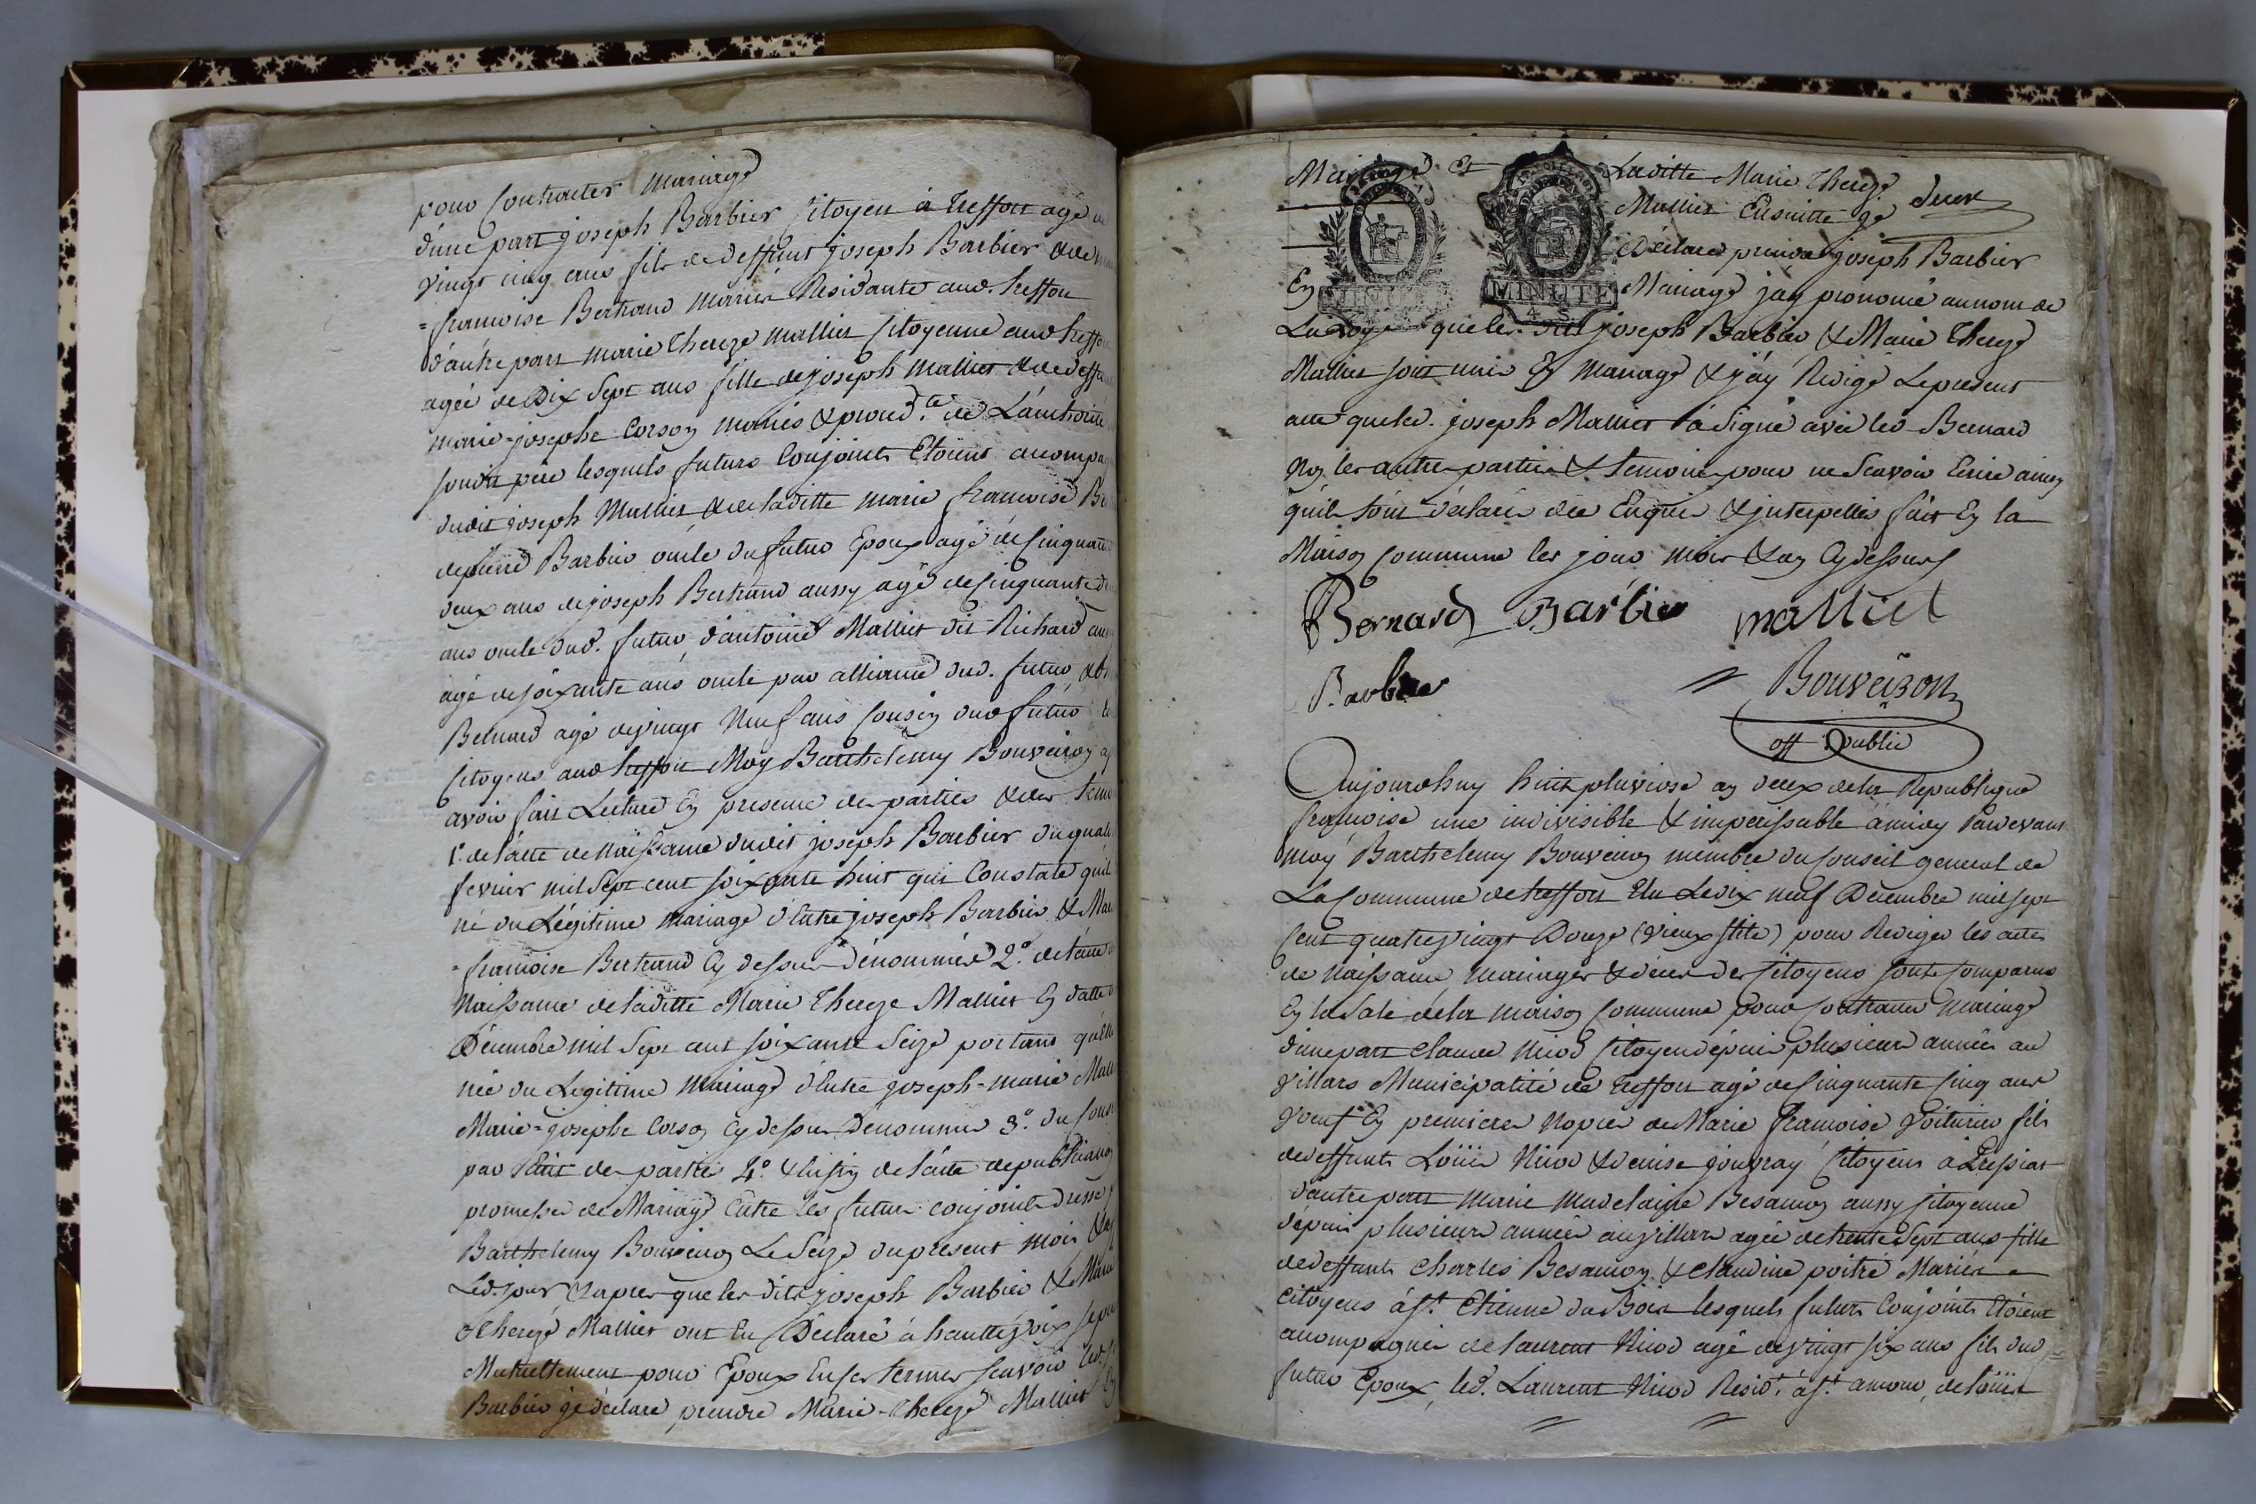 pour Contracter mariage
d'une part joseph Barbier Citoyen à treffort agé de
vingt cinq ans fils de deffunt joseph Barbier & de
=francoise Bertrand mariés Residante aud. treffort
d'autre part marie thereze malliet Citoyenne aud treffort
agée de Dix Sept ans fille de joseph malliet & de deffu
marie-josephe Corsoy mariés & proced.te de L'authorité
sondit père lesquels futurs Conjoints Etoient acompa
dudit joseph Malliet & de laditte marie francoise Be
de pierre Barbier oncle du futur Epoux agé de Cinquante
deux ans de joseph Bertrand aussy agé de Cinquante d
ans oncle dud. futur, d'antoine Malliet dit Richard
agé de soixante ans oncle par alliance dud. futur
Bernard agé de vingt Neuf ans Cousin dud futur
Citoyens aud treffort Moy Barthelemy Bouveiroy
avoir fait Lecture Ey presence des parties & des tem
1.º de l'acte de naissance dudit joseph Barbier du quat
fevrier mil Sept cent soixante huit qui Constate quil
né du Légitime mariage d'Entre joseph Barbier & Mar
=francoise Bertrand Cy dessus dénommés 2.º de l'acte
Naissance de laditte Marie Thereze Malliet Ey datte
Décembre mil Sept cent soixante Seize portant quelle
née du Legitime Mariage d'Entre joseph-marie Mall
Marie=josephe Corsoy Cy dessus Dénommés 3.º du Cons
par des parties 4.º & Enfiy de l'acte de publicatioy
promesse de Mariage Entre les futurs conjoints dressé
Barthelemy Bouveiroy Le Seize du present mois
Led. jour & apres que lesdits joseph Barbier & Marie
thereze Malliet ont Eu Déclaré à hautte voix
Mutuellement pour Epoux En ces termes scavoir led.
Barbier je déclare prendre Marie-Thereze Malliet Ey
Mariage Et Laditte Marie Thereze
Malliet Ensuitte je
deux
Déclare prendre joseph Barbier
Ey Mariage jay prononcé au nom de
MINUTE
MINUTE
4. S
La Loy que lesdits joseph Barbier & Marie Thereze
Malliet sont unis Ey Mariage & j'ay Redigé Le present
acte que led. joseph Malliet à Signé avec led Bernard
Noy les autres parties & temoins pour ne Scavoir Ecrire ainsy
quils sont déclarés de Enquis & jnterpellés fait Ey la
Maisoy Commune les jour mois & ay Cy dessus
Bernard Barbier malliet
Barbier Bouveiron
off public
Aujourdhuy huit pluviose ay deux de la Republique
françoise une indivisible & imperissable à midy Pardevant
moy Barthelemy Bouveiroy membre du Conseil general de
La Commune de treffort Elu Le dix neuf Décembre mil sept
Cent quatre vingt Douze (vieux stile) pour Rediger les actes
de Naissance, Mariages & déces des Citoyens sont Comparus
Ey la Sale de la maisoy Commune pour Contracter Mariage
d'une part claude Nicod Citoyen dépuis plusieurs années au
Villars Municipalité de treffort agé de Cinquante Cinq ans
veuf Ey premieres Nopces de Marie francoise Voiturier fils
de deffunts Loüis Nicod & denise gouvray Citoyens à Pressiat
d'autre part Marie Madelaine Besançoy aussy Citoyenne
dépuis plusieurs années au villars agée de trente Sept ans fille
de deffunts Charles Besançoy & Claudine poitre Mariés
Citoyens à s.t Etienne du Bois lesquels futurs Conjoints Etoient
acompagnés de laurent Nicod agé de vingt six ans fils dud
futur Epoux, led. Laurent Nicod Resid.t à s.t amour, de loüis